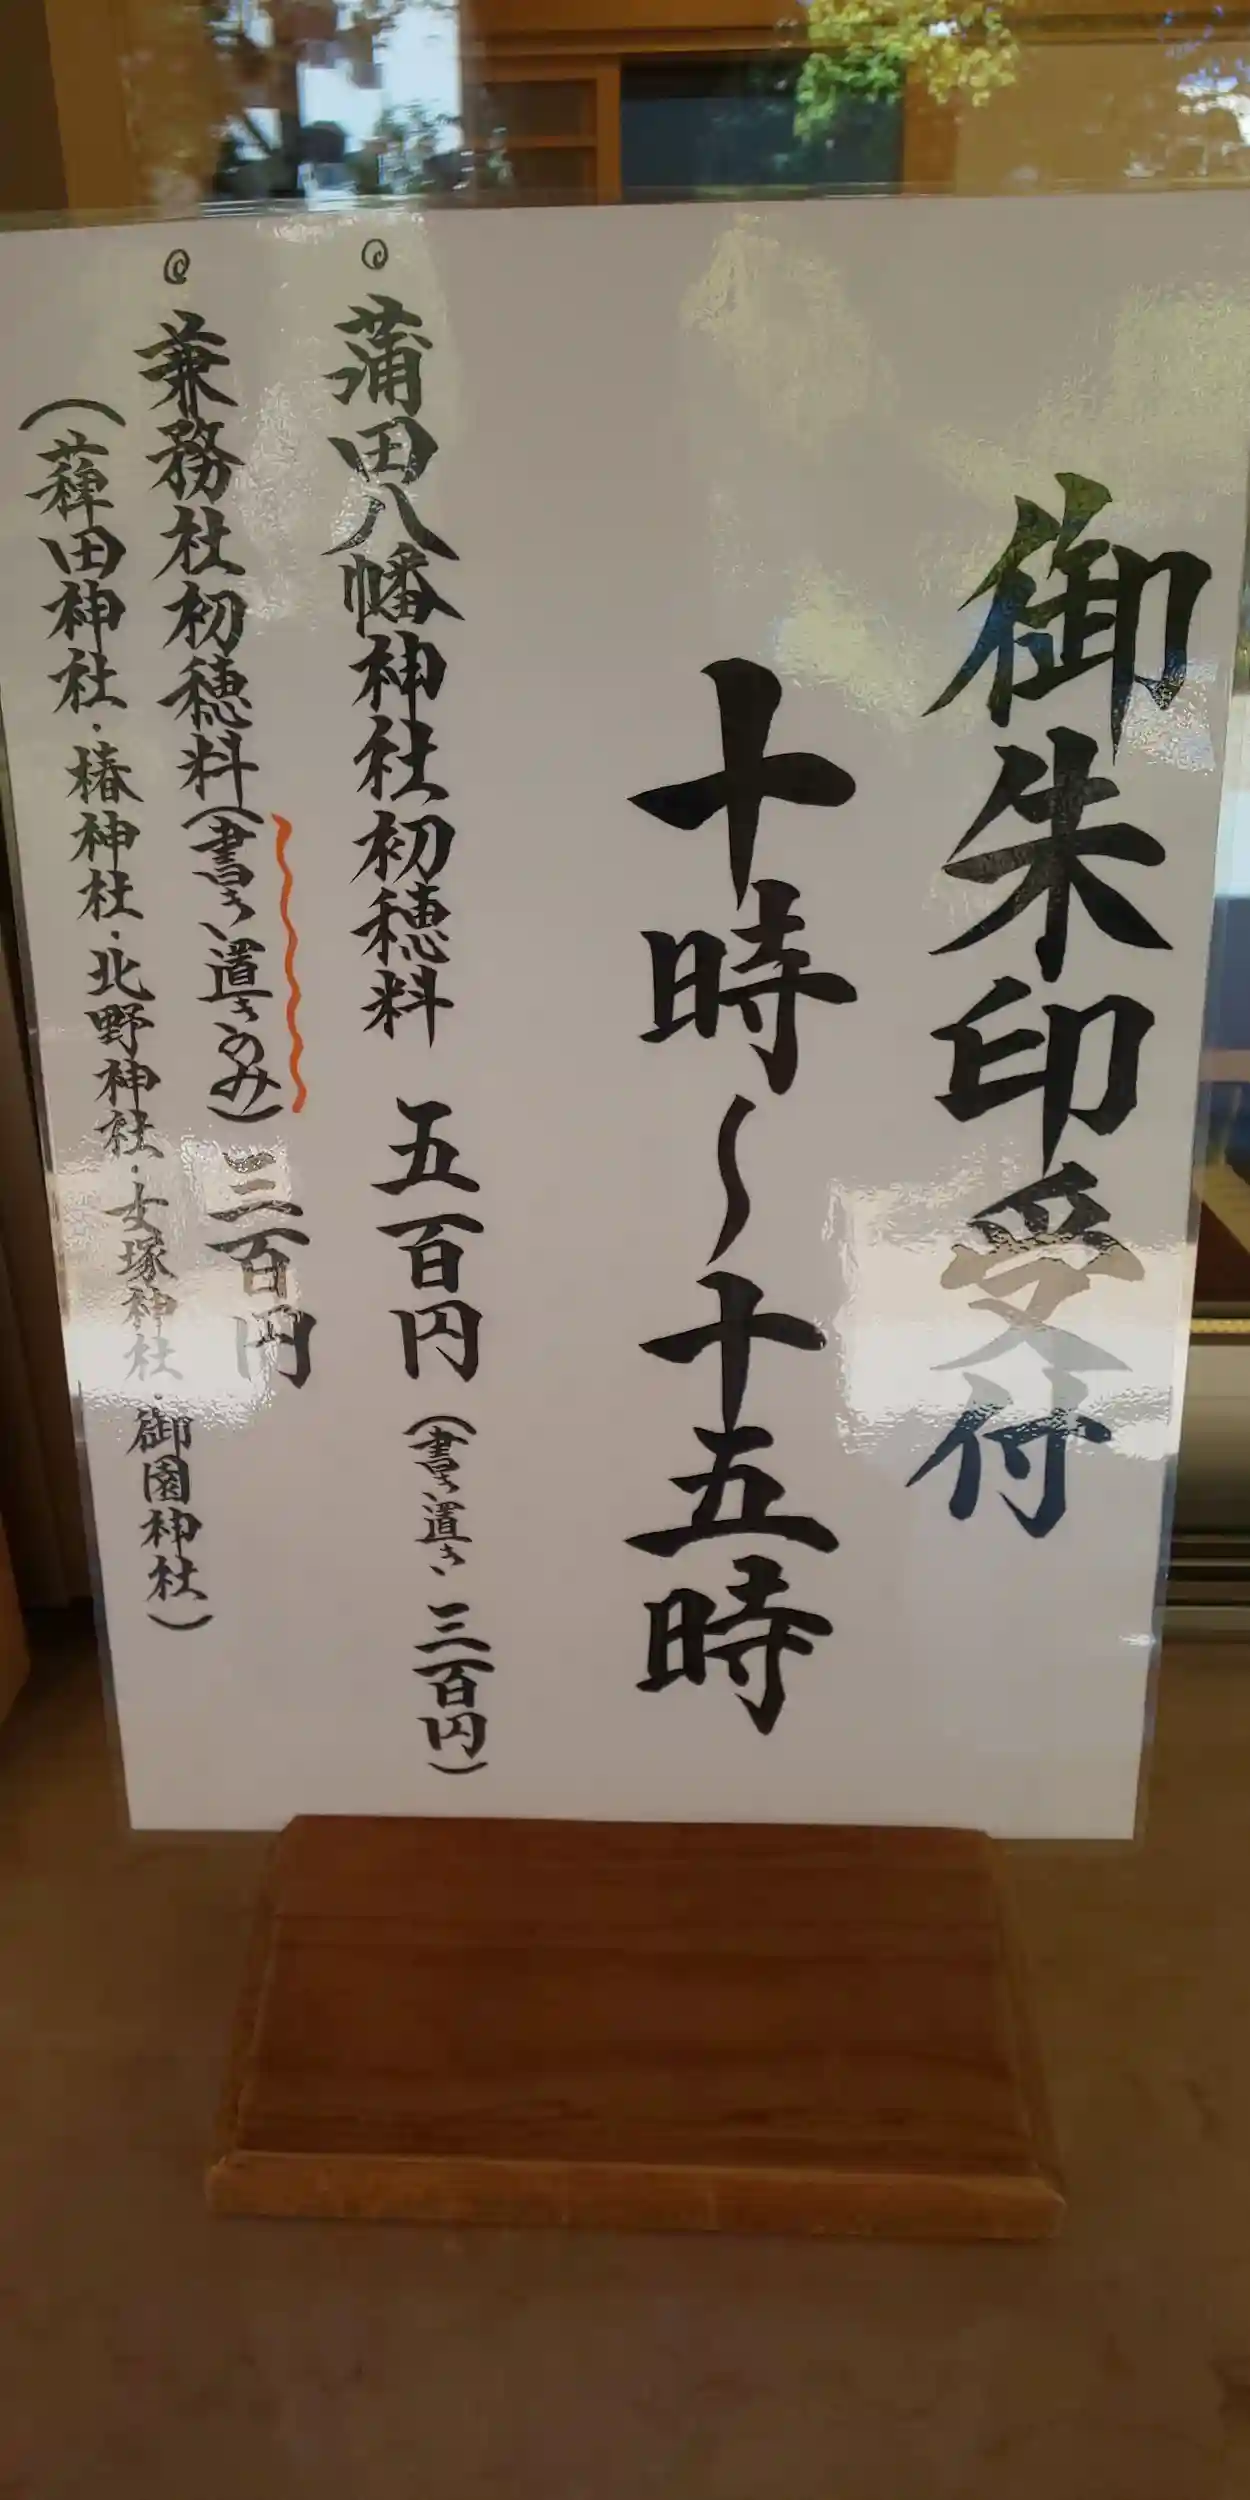 御朱印受付
十時〜十五時
◎蒲田八幡神社初穂料 五百円(書き置き 三百円)
◎兼務社初穂料(書き置きのみ)三百円
(薭田神社・椿神社・北野神社・女塚神社・御園神社)